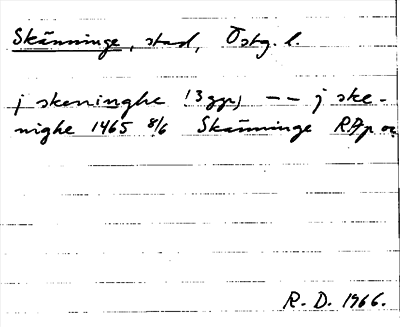 Skänninge, stad, Östg. l.
j skeninghe (3 ggr) — — j ske-
nighe 1465 8/6 Skänninge RAp or.
R. D. 1966.